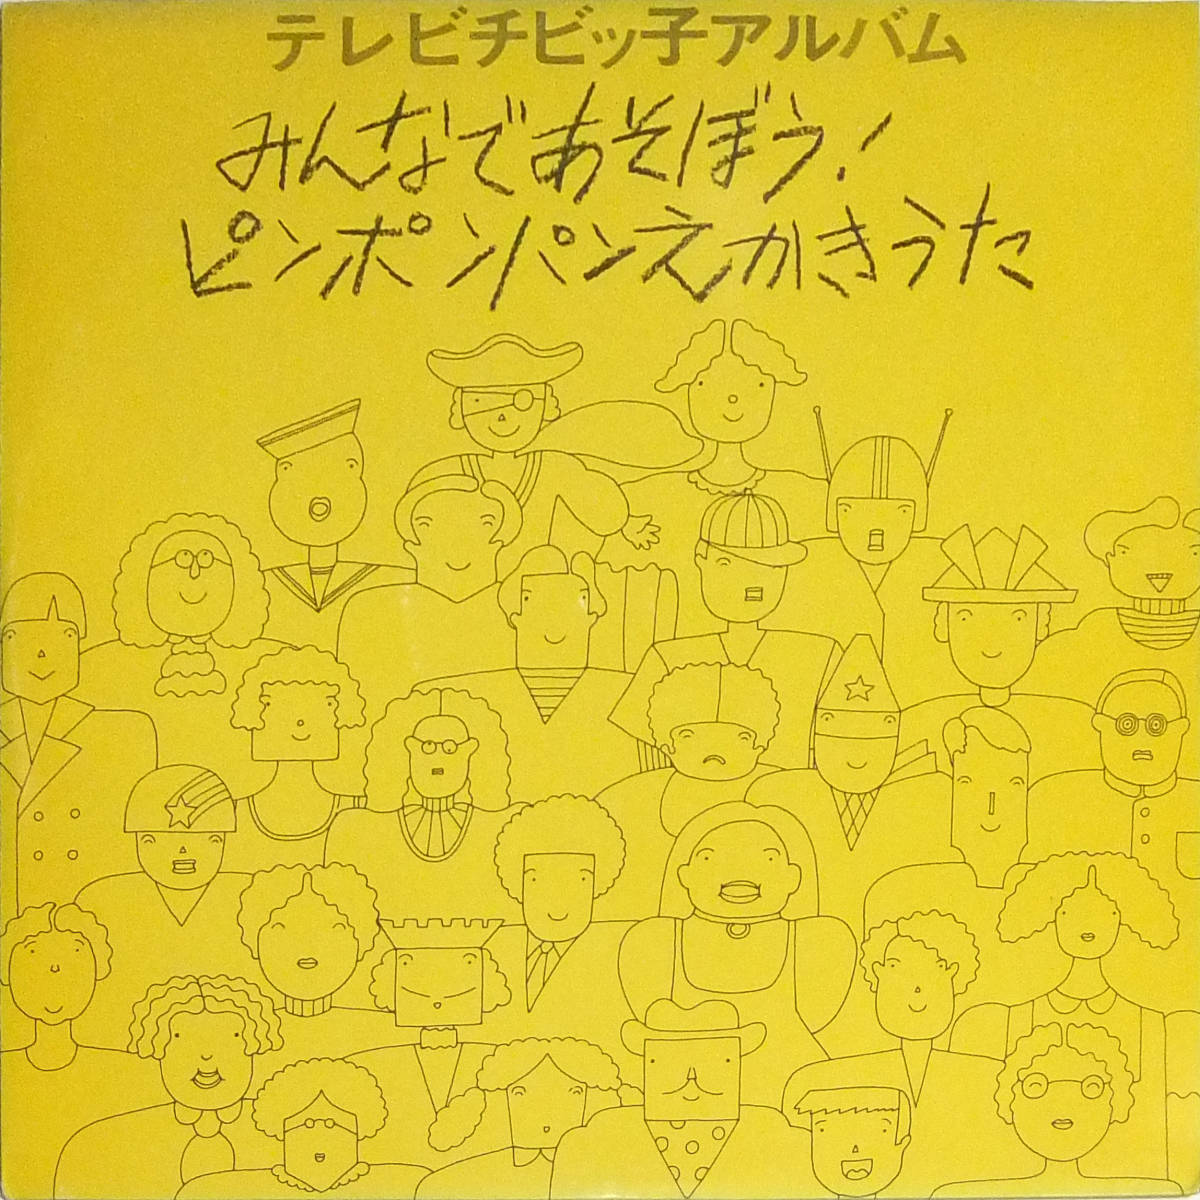 テレビチビッ子アルバム
みんなであそぼう!
ピンポンパンえかきうた